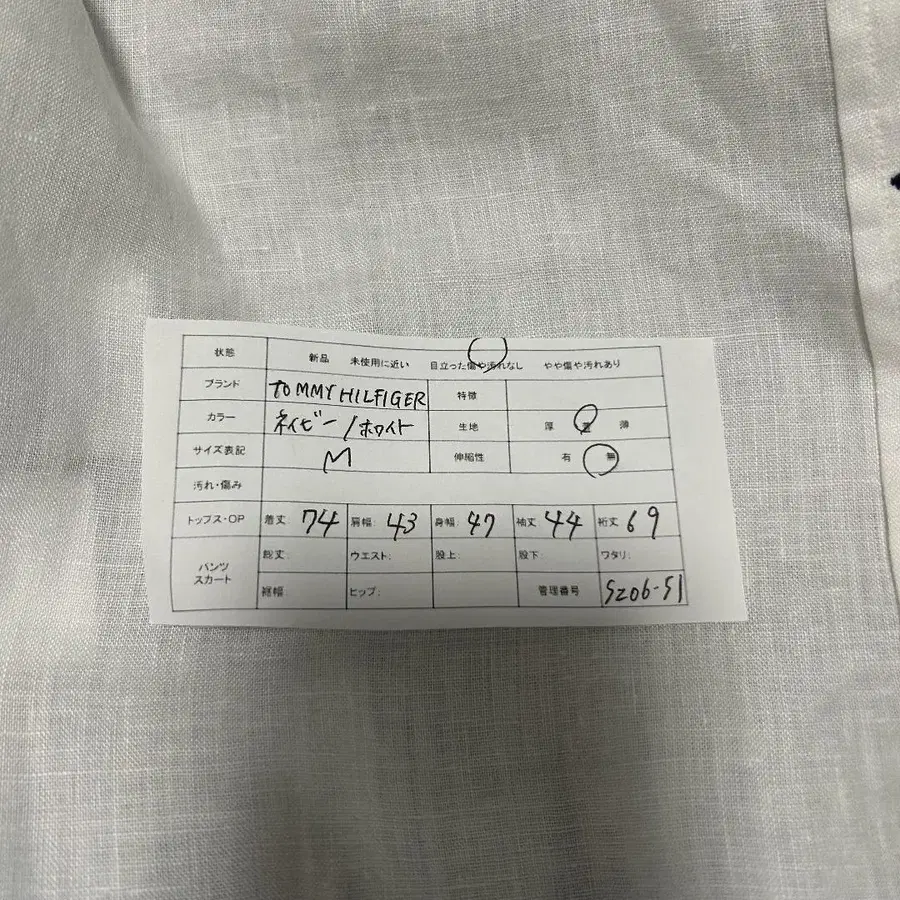 状態 新品 未使用に近い 目立った傷や汚れなし やや傷や汚れあり
ブランド TOMMY HILFIGER 特徴
カラー ネイビー/ホワイト 生地 厚 普 薄
サイズ表記 M 伸縮性 有 無
汚れ・傷み
トップス・OP 着丈: 74 肩幅: 43 身幅: 47 袖丈 44 裄丈 69
パンツ スカート 総丈: ウエスト: 股上: 股下: ワタリ:
裾幅 ヒップ: 管理番号 S206-51